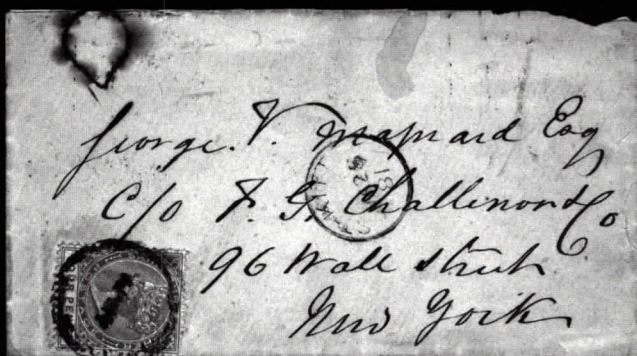 George. V. Maynard Esq
C/o F. G. Challinor & Co
96 Wall Street
New York
FOUR PENCE